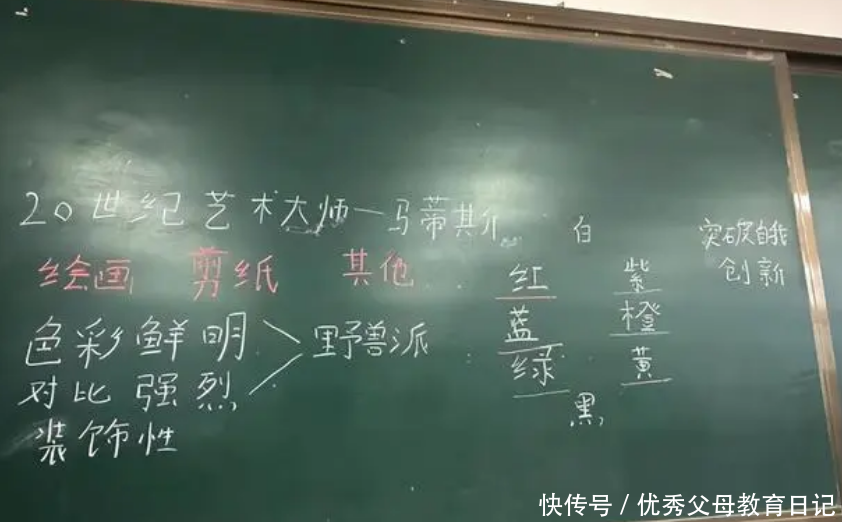 20世纪艺术大师—马蒂斯
绘画 剪纸 其他
色彩鲜明
对比强烈
野兽派
装饰性
白
红 紫
蓝 橙
绿 黄
黑
突破自我
创新
快传号 / 优秀父母教育日记